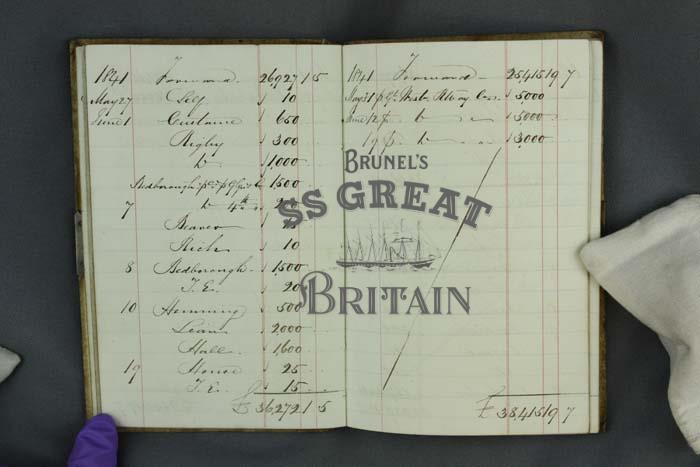 1841 Forward 26,927 1 5
May 27 Self " 10
June 1 Custance " 650
Rigby " 300
Do " 1,000
Bedborough " 1,500
7 Do 4th
Beaver "
Rich " 10
8 Bedborough " 1,500
T.E. " 20
10 Hemming " 500
" 2,000
Hall " 1,600
19 House " 25
T.E. " 15
£ 36,272 1 5
1841 Forward 25,415 19 7
May 31 p Gt West. Railway Co " 5,000
June 12 p Do " 5,000
19 p Do " 3,000
£ 38,415 19 7
BRUNEL'S
SS GREAT
BRITAIN